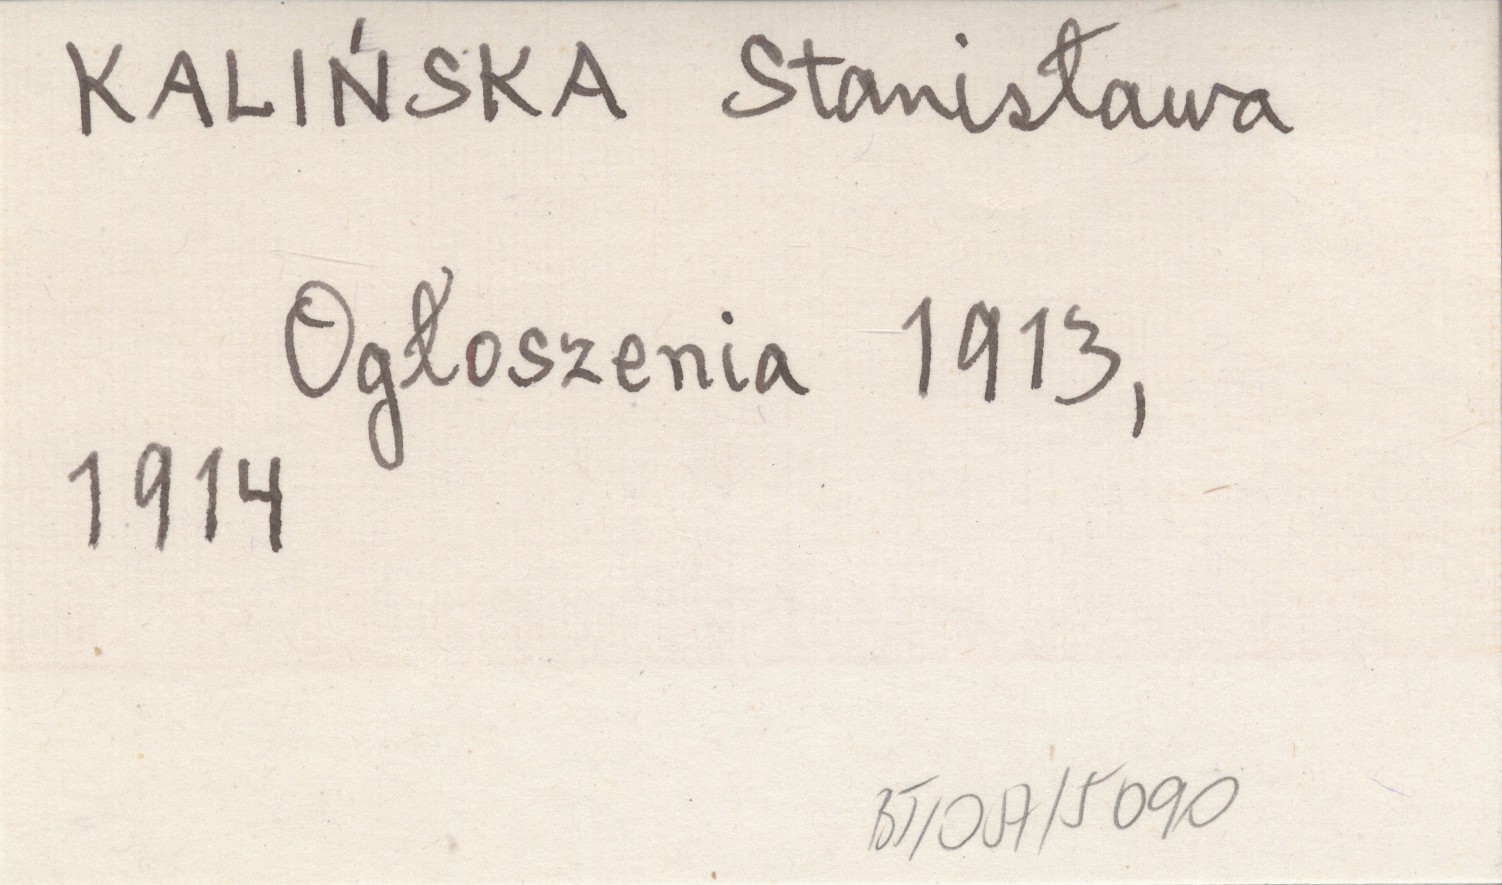 KALIŃSKA Stanisława
Ogłoszenia 1913,
1914
BJ/OSA/5090